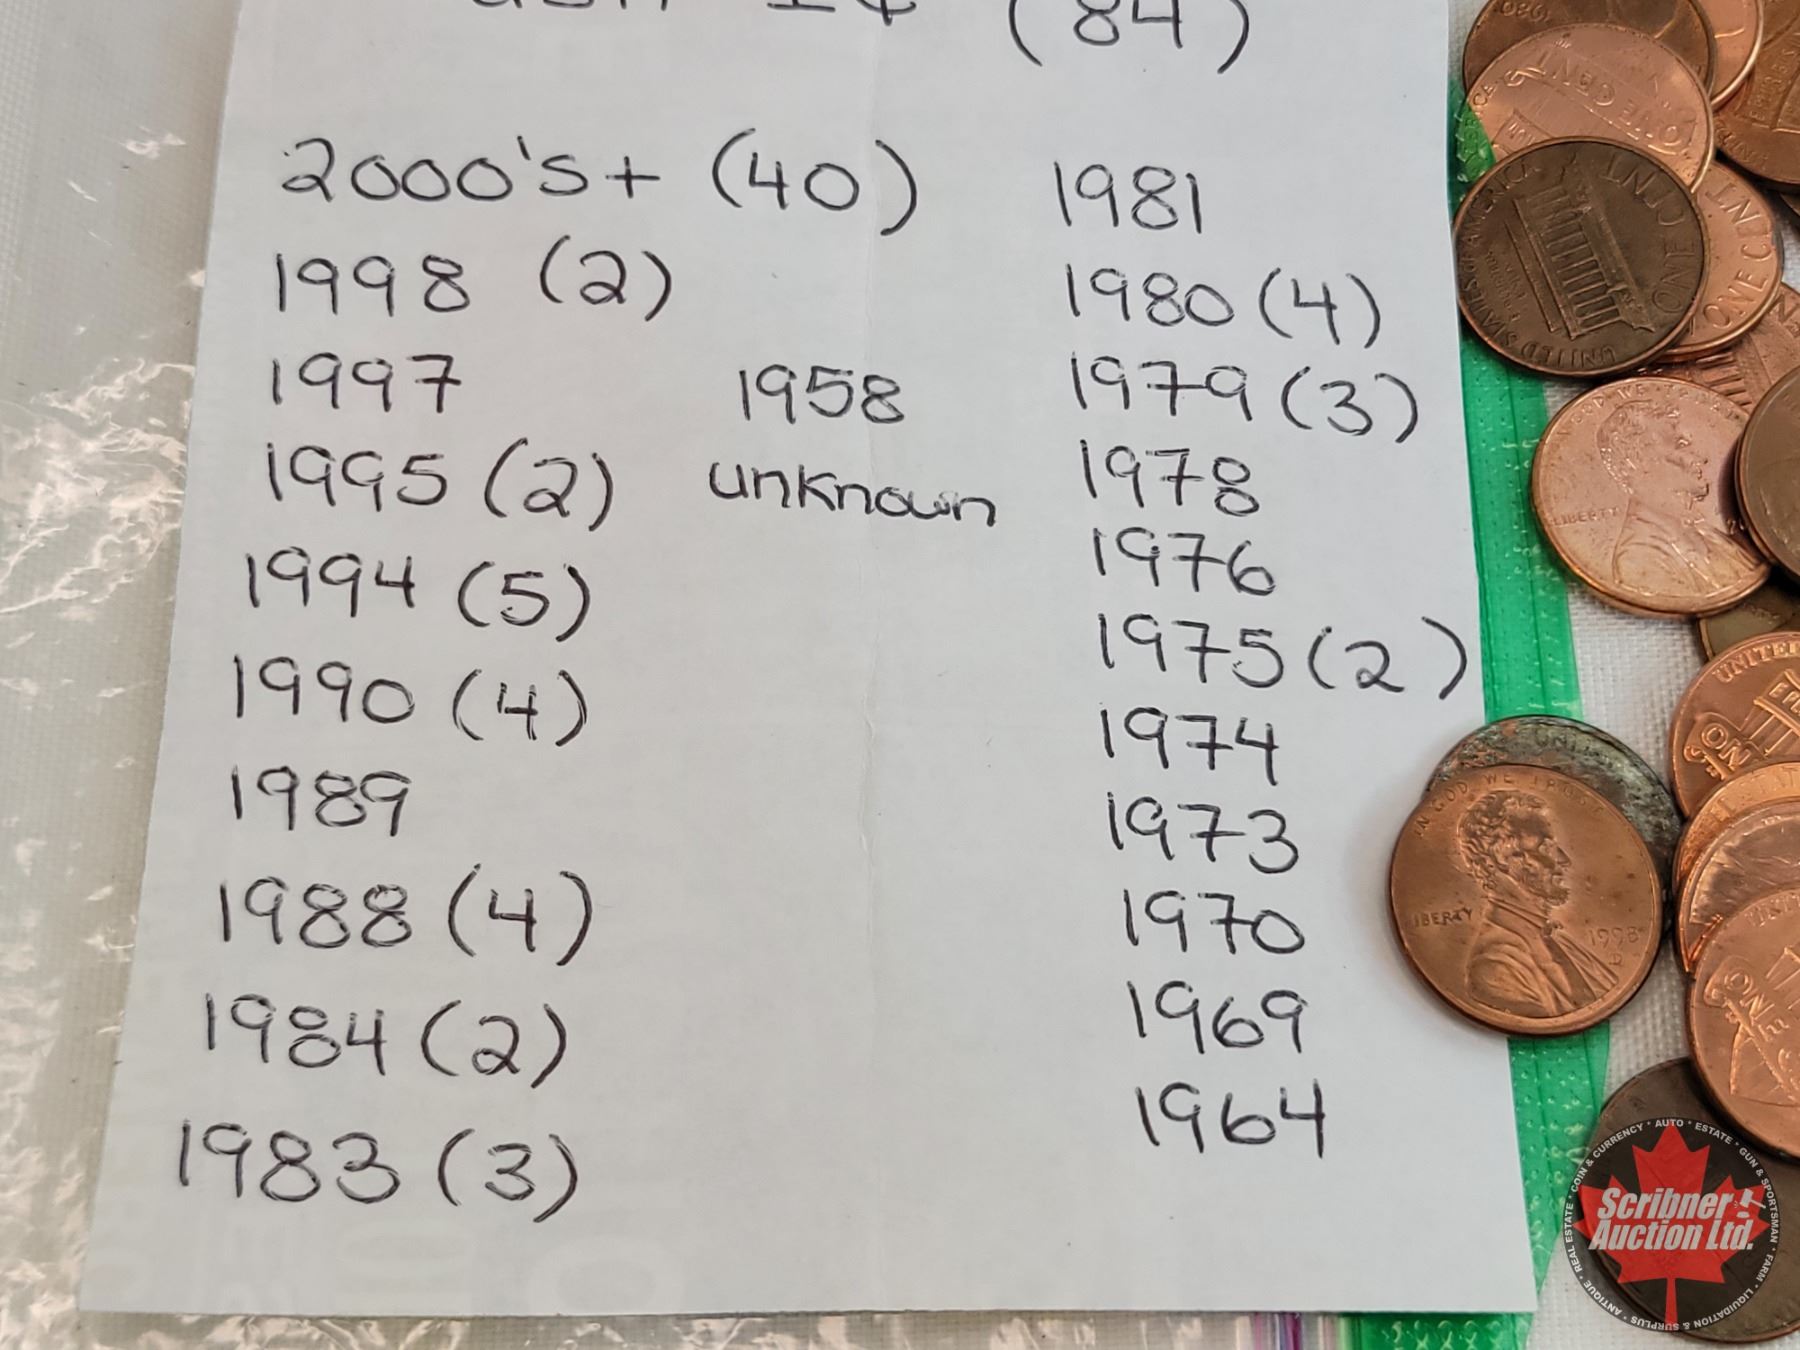 1¢ (84)
2000's+ (40)
1998 (2)
1997
1995 (2)
1994 (5)
1990 (4)
1989
1988 (4)
1984 (2)
1983 (3)
1958
unknown
1981
1980 (4)
1979 (3)
1978
1976
1975 (2)
1974
1973
1970
1969
1964
ONE CENT
UNITED STATES OF AMERICA
ONE CENT
ONE CENT
LIBERTY
UNITED
IN GOD WE TRUST
LIBERTY
1998
COIN & CURRENCY * AUTO * ESTATE * GUN & SPORTSMAN * FARM * LIQUIDATION & SURPLUS * ANTIQUE * REAL ESTATE *
Scribner
Auction Ltd.